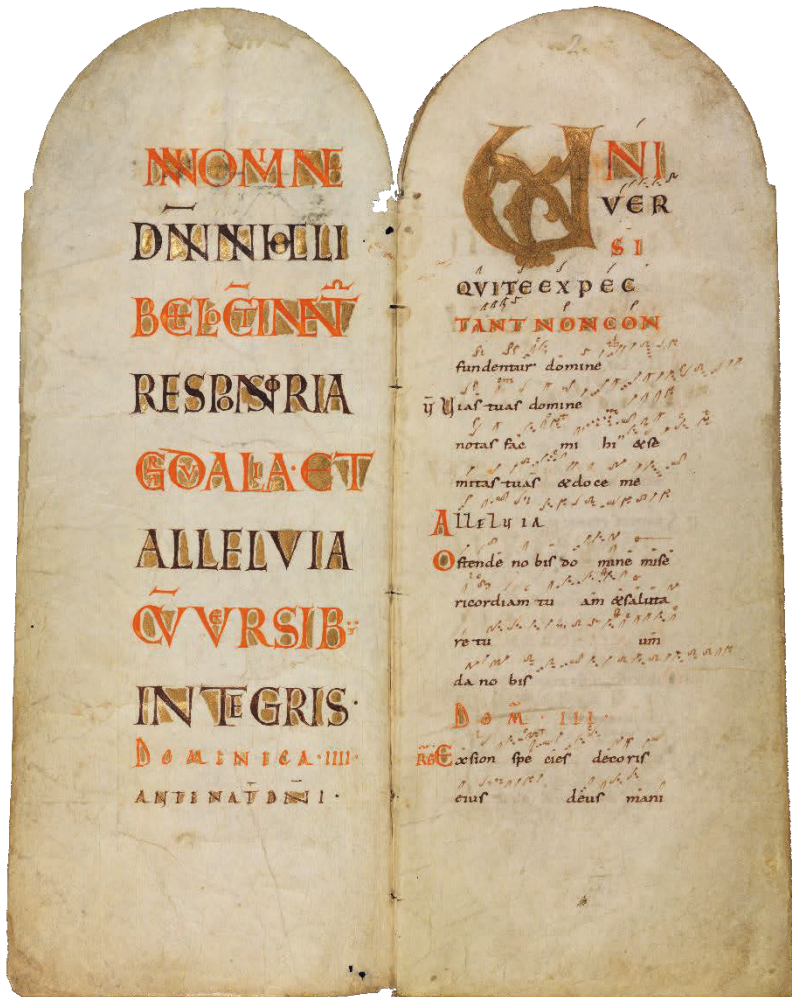 IN NOMINE
DN̄I LI
RESPONSORIA
GRADVALIA·ET
ALLELVIA
CV̄ VERSIB·
INTEGRIS·
DOMINICA·IIII·
ANTE NAT̄ DN̄I·
2
UNI
VER
SI
QVI TE EXPEC
TANT NON CON
fundentur domine
ꝟ Vias tuas domine
notas fac mi hi &se
mitas tuas &doce me
Alleluia
Ostende no bis do mine mise
ricordiam tu am &saluta
re tu um
da no bis
DOM̄·III·
RG Exsion spe cies decoris
eius deus mani